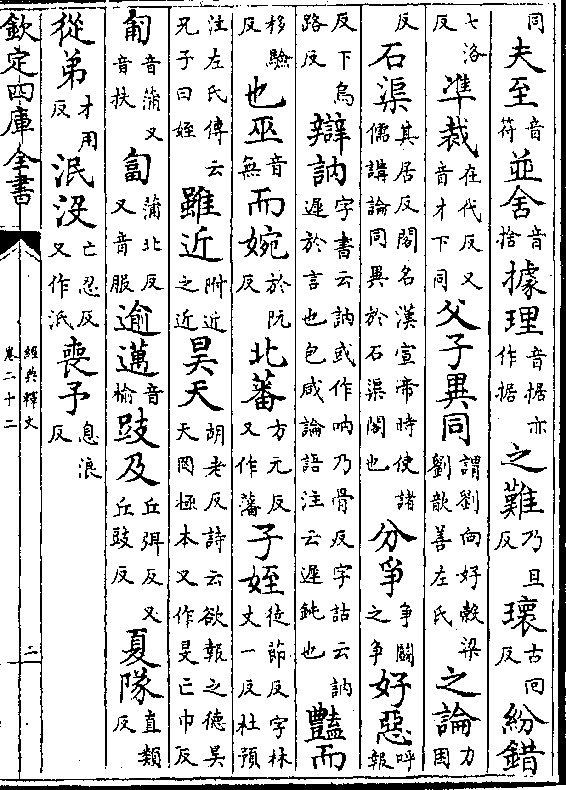 同夫至音符並舍音捨據理音据亦作据之難乃旦反瓌古回反紛錯
七洛反凖裁在代反又音才下同父子異同謂劉向好糓梁劉歆善左氏之論力困
反石渠其居反閣名漢宣帝時使諸儒講論同異於石渠閣也分爭爭鬭之爭好惡呼報
反下烏路反辯訥字書云訥或作吶乃骨反字詁云訥遲於言也包咸論語注云遲鈍也豔而
移驗反也巫音無而婉於阮反北蕃方元反又作藩子姪徒節反字林丈一反杜預
注左氏傳云兄子曰姪雖近附近之近昊天胡老反詩云欲報之德昊天罔極本又作旻亡巾反
匍音蒲又音扶匐蒲北反又音服逾邁音榆跂及丘弭反又丘豉反夏隊直類反
從弟才用反泯没亡忍反又作泯喪予息浪反
欽定四庫全書
經典釋文
卷二十二
二